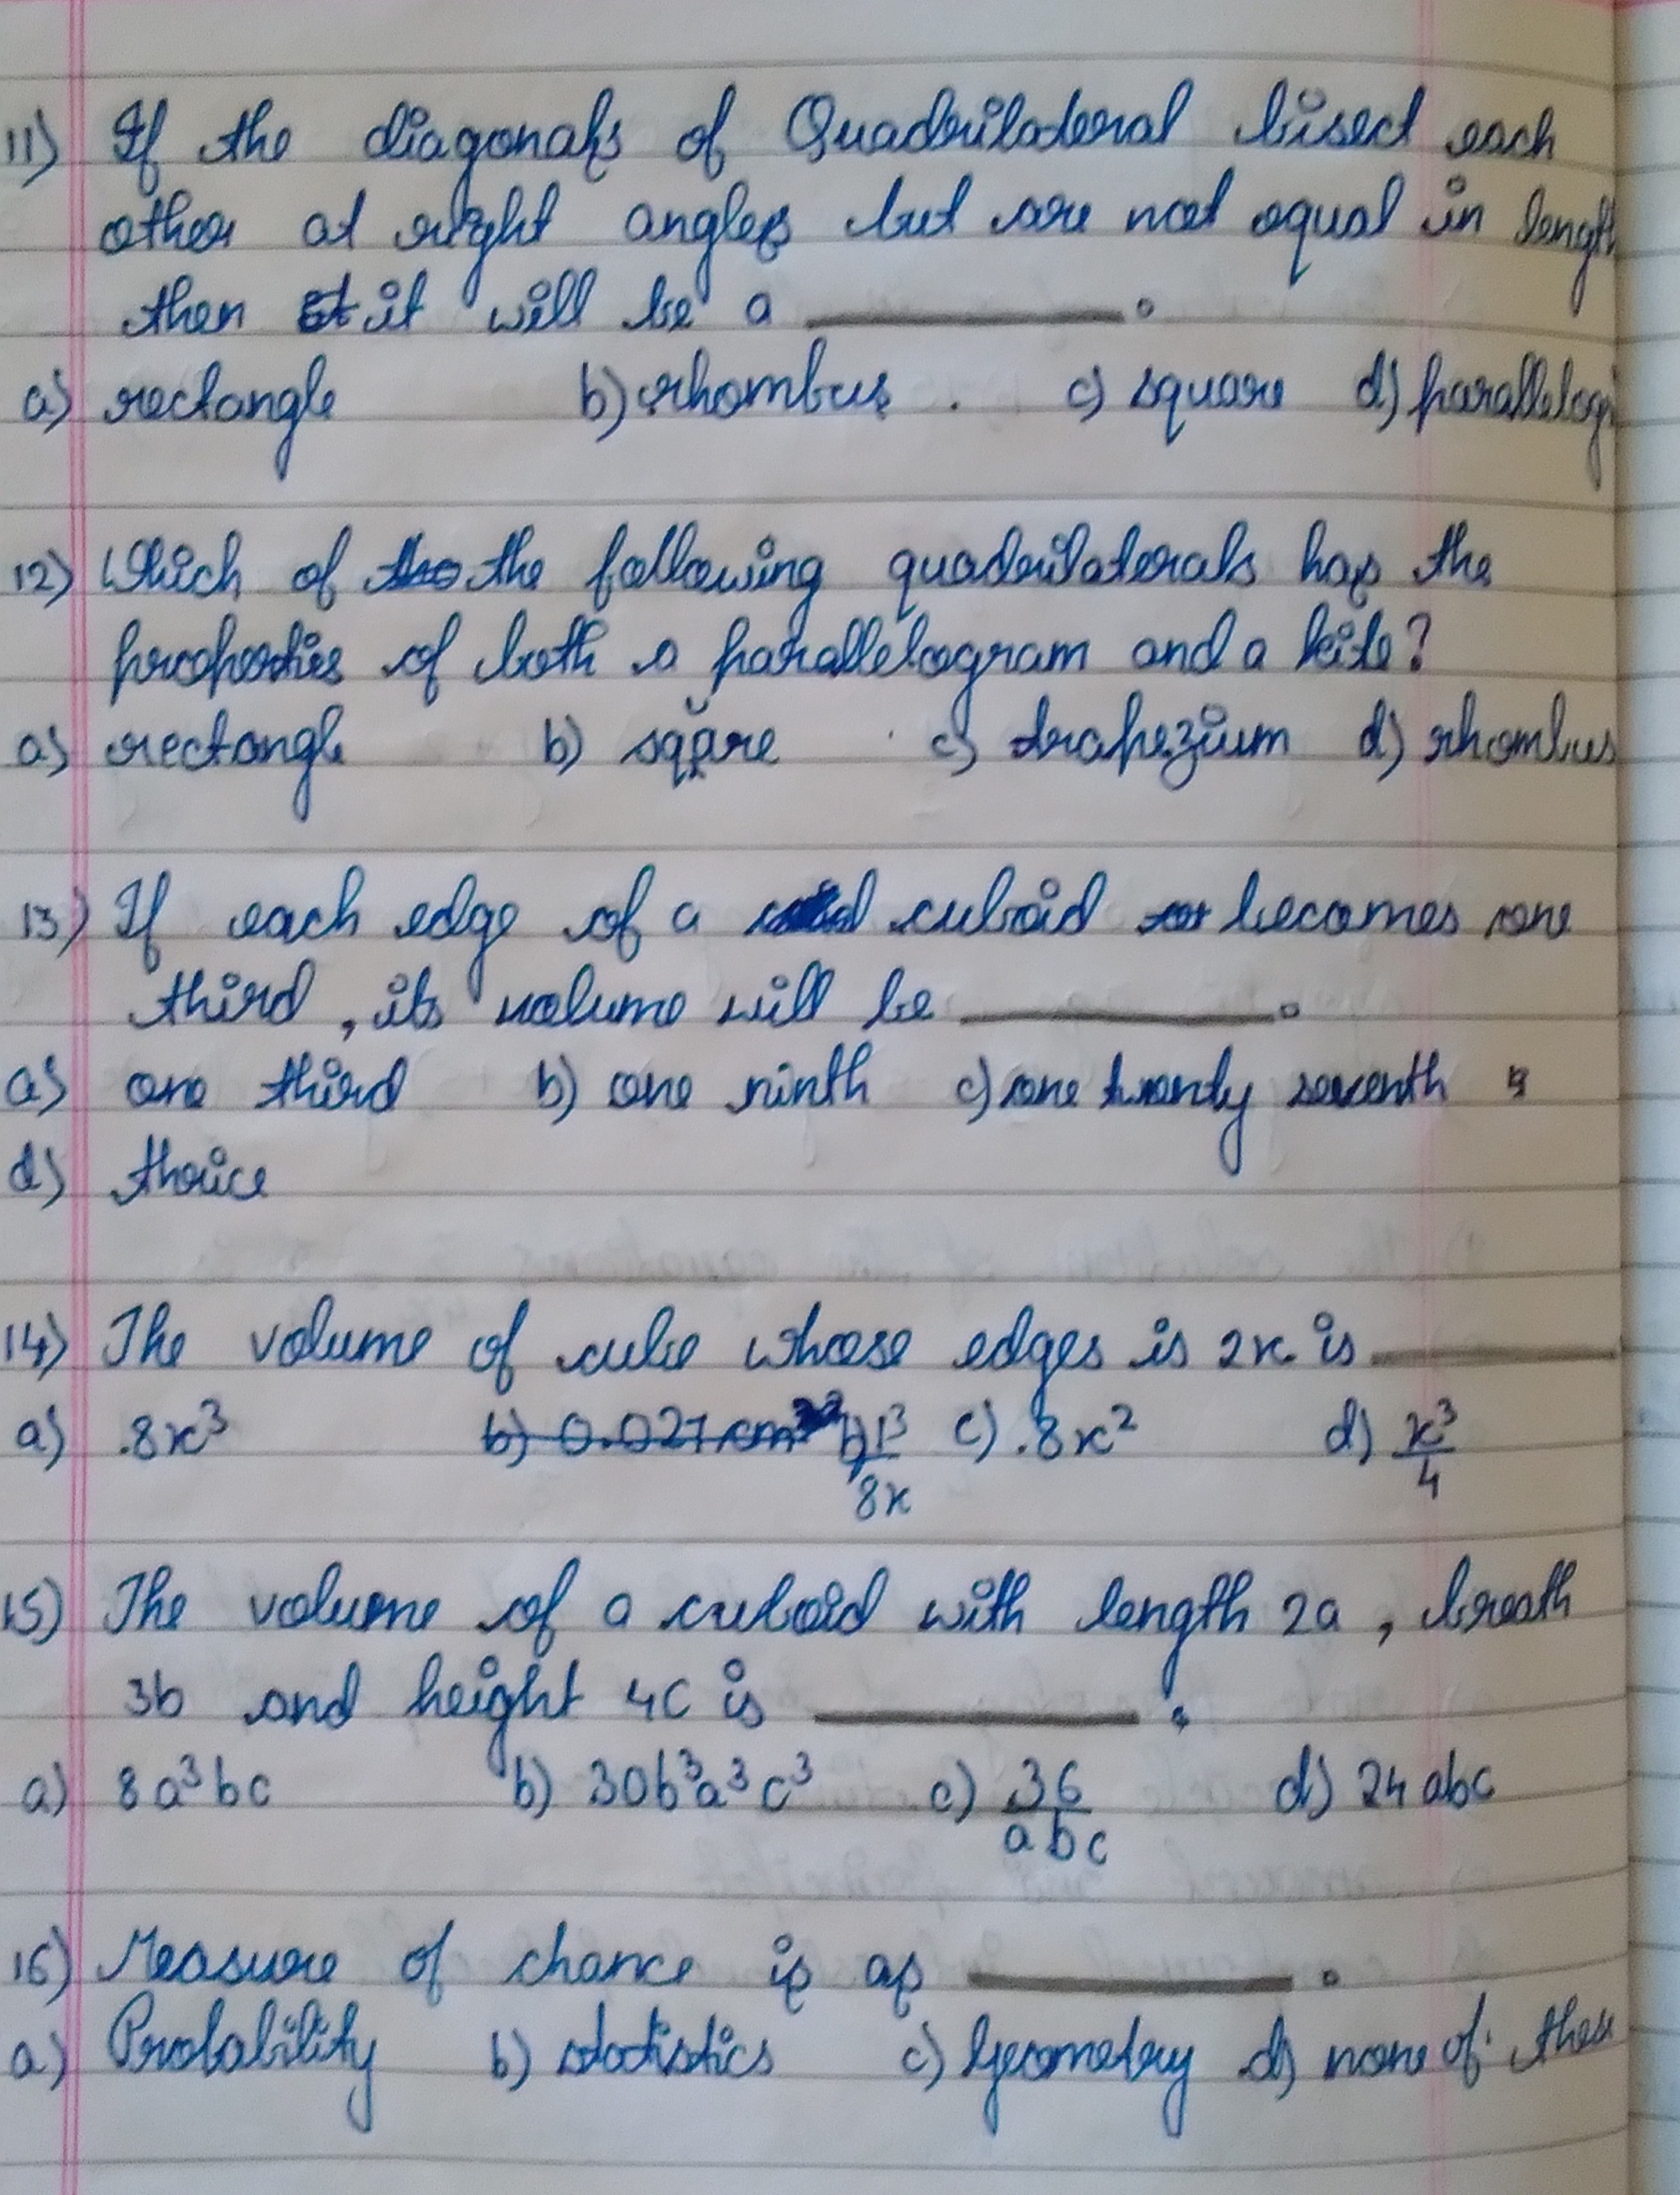 11) If the diagonals of Quadrilateral bisect each
other at right angles but are not equal in length
then it will be a ________.
a) rectangle b) rhombus . c) square d) parallelog
12) Which of the following quadrilaterals has the
properties of both a parallelogram and a kite?
a) rectangle b) sqare c) trapezium d) rhombus
13) If each edge of a cuboid becomes one
third, its volume will be ________.
a) one third b) one ninth c) one twenty seventh
d) thrice
14) The volume of cube whose edges is 2x is ________
a) .8x³ b) 0.027 cm³ b) 1³/8x c) .8x² d) x³/4
15) The volume of a cuboid with length 2a, breath
3b and height 4c is ________.
a) 8a³bc b) 30b³a³c³ c) 36/abc d) 24 abc
16) Measure of chance is as ________.
a) Probability b) statistics c) Geometry d) none of these